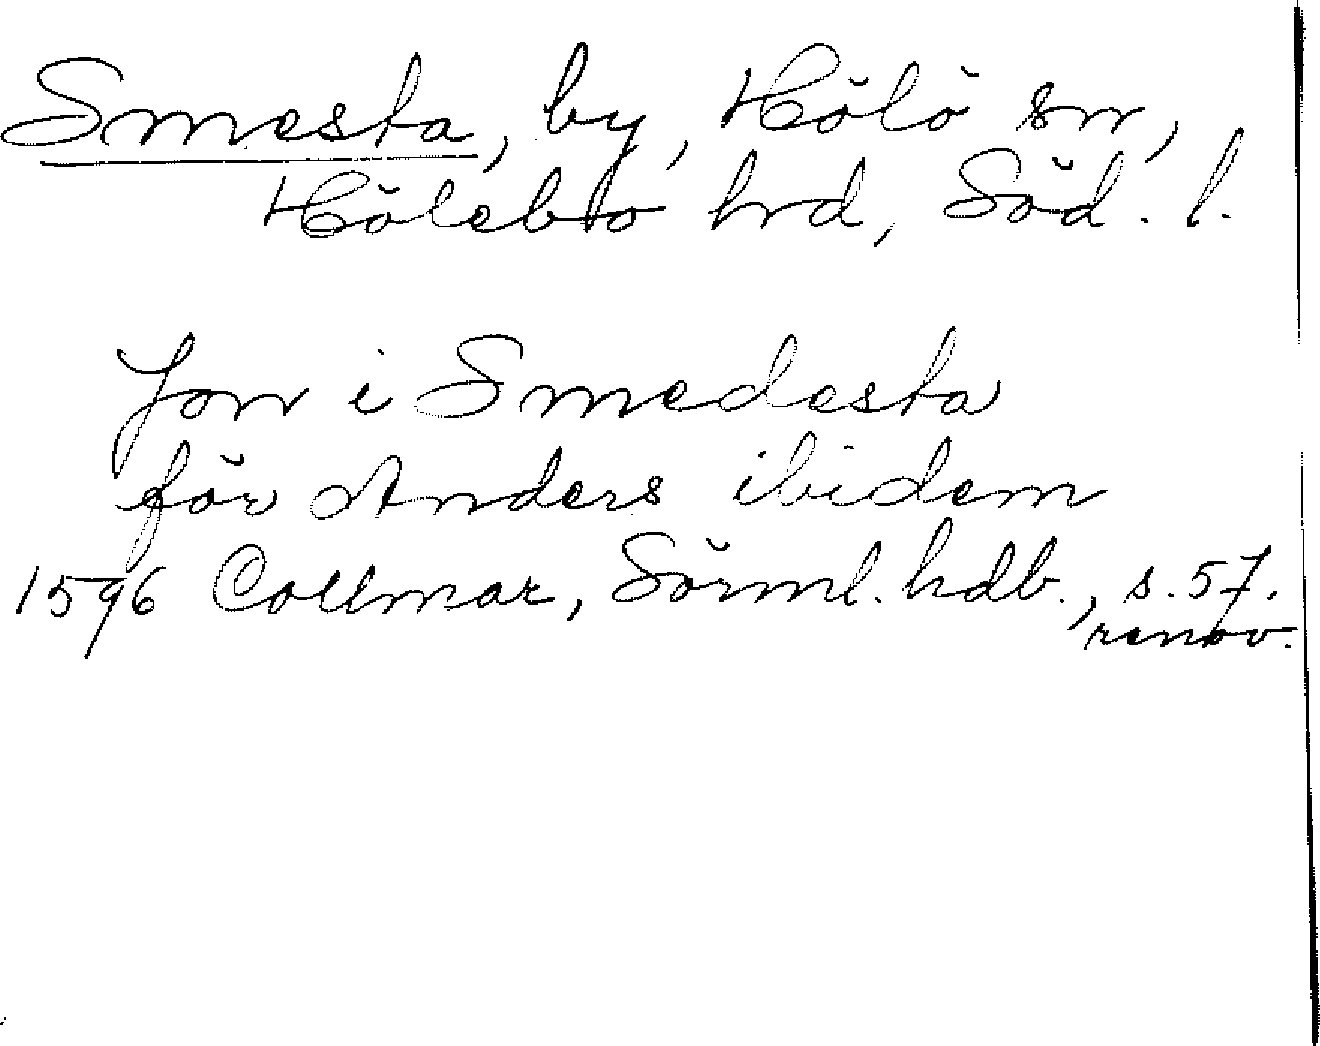 Smesta, by, Hölö sn,
Hölebo hrd, Söd. l.
Jon i Smedesta
för Anders ibidem
1596 Collmar, Sörml. hdb., s. 57.
renov.